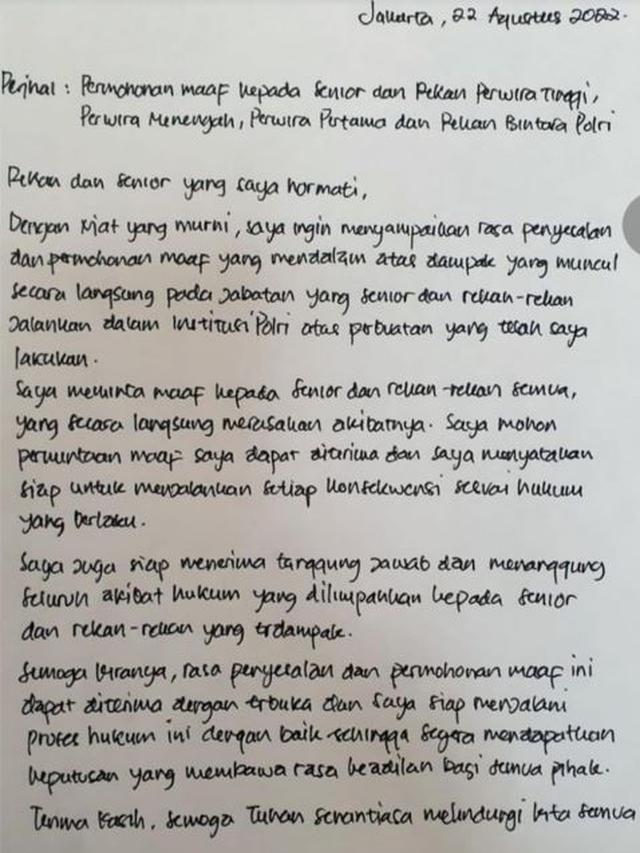 Jakarta, 22 Agustus 2022.
Perihal : Permohonan maaf kepada Senior dan Rekan Perwira Tinggi,
Perwira Menengah, Perwira Pertama dan Rekan Bintara Polri
Rekan dan Senior yang saya hormati,
Dengan niat yang murni, saya ingin menyampaikan rasa penyesalan
dan permohonan maaf yang mendalam atas dampak yang muncul
secara langsung pada jabatan yang senior dan rekan-rekan
jalankan dalam Institusi Polri atas perbuatan yang telah saya
lakukan.
Saya meminta maaf kepada Senior dan rekan-rekan semua,
yang secara langsung merasakan akibatnya. Saya mohon
permintaan maaf saya dapat diterima dan saya menyatakan
siap untuk menjalankan setiap konsekwensi sesuai hukum
yang berlaku.
Saya juga siap menerima tanggung jawab dan menanggung
seluruh akibat hukum yang dilimpahkan kepada senior
dan rekan-rekan yang trdampak.
Semoga kiranya, rasa penyesalan dan permohonan maaf ini
dapat diterima dengan trbuka dan saya siap menjalani
proses hukum ini dengan baik sehingga segera mendapatkan
keputusan yang membawa rasa keadilan bagi semua pihak.
Terima kasih, semoga Tuhan senantiasa melindungi kita semua